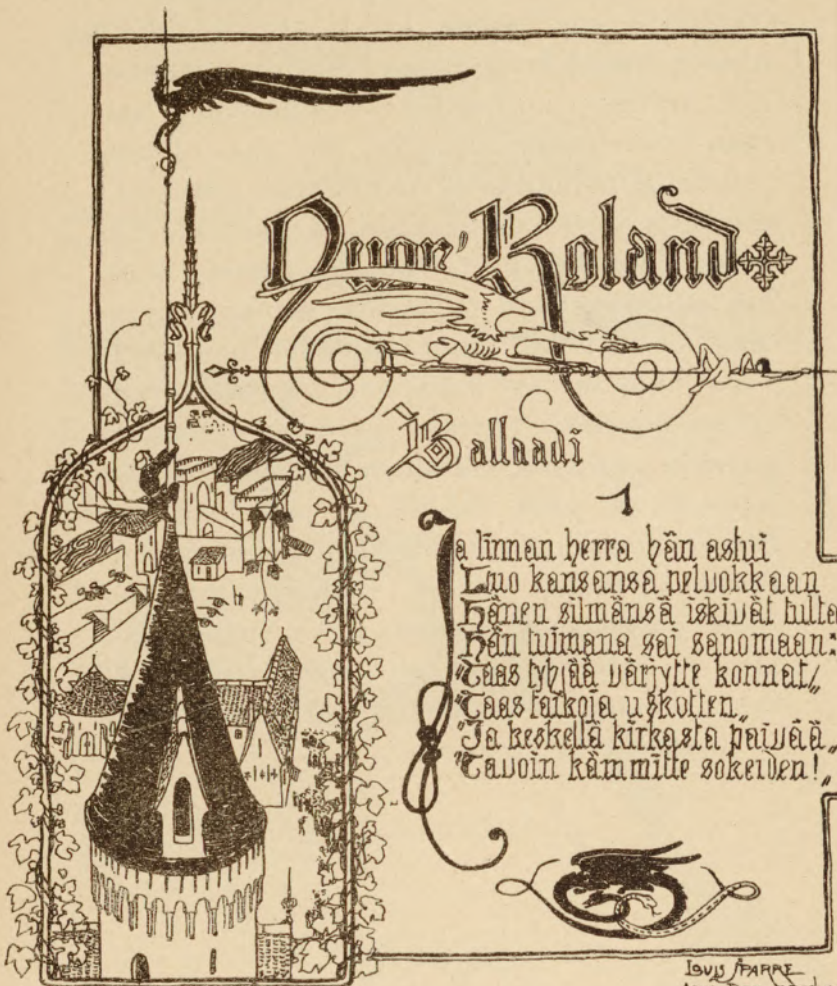 Nuor' Roland
Ballaadi
1
Ja linnan herra hän astui
Luo kansansa pelvokkaan
Hänen silmänsä iskivät tulta
Hän tuimana sai sanomaan:
"Taas tyhjää värjytte konnat,
"Taas taikoja uskotten,
"Ja keskellä kirkasta päivää,
"Tavoin kämmitte sokeiden!"
LOUIS SPARRE